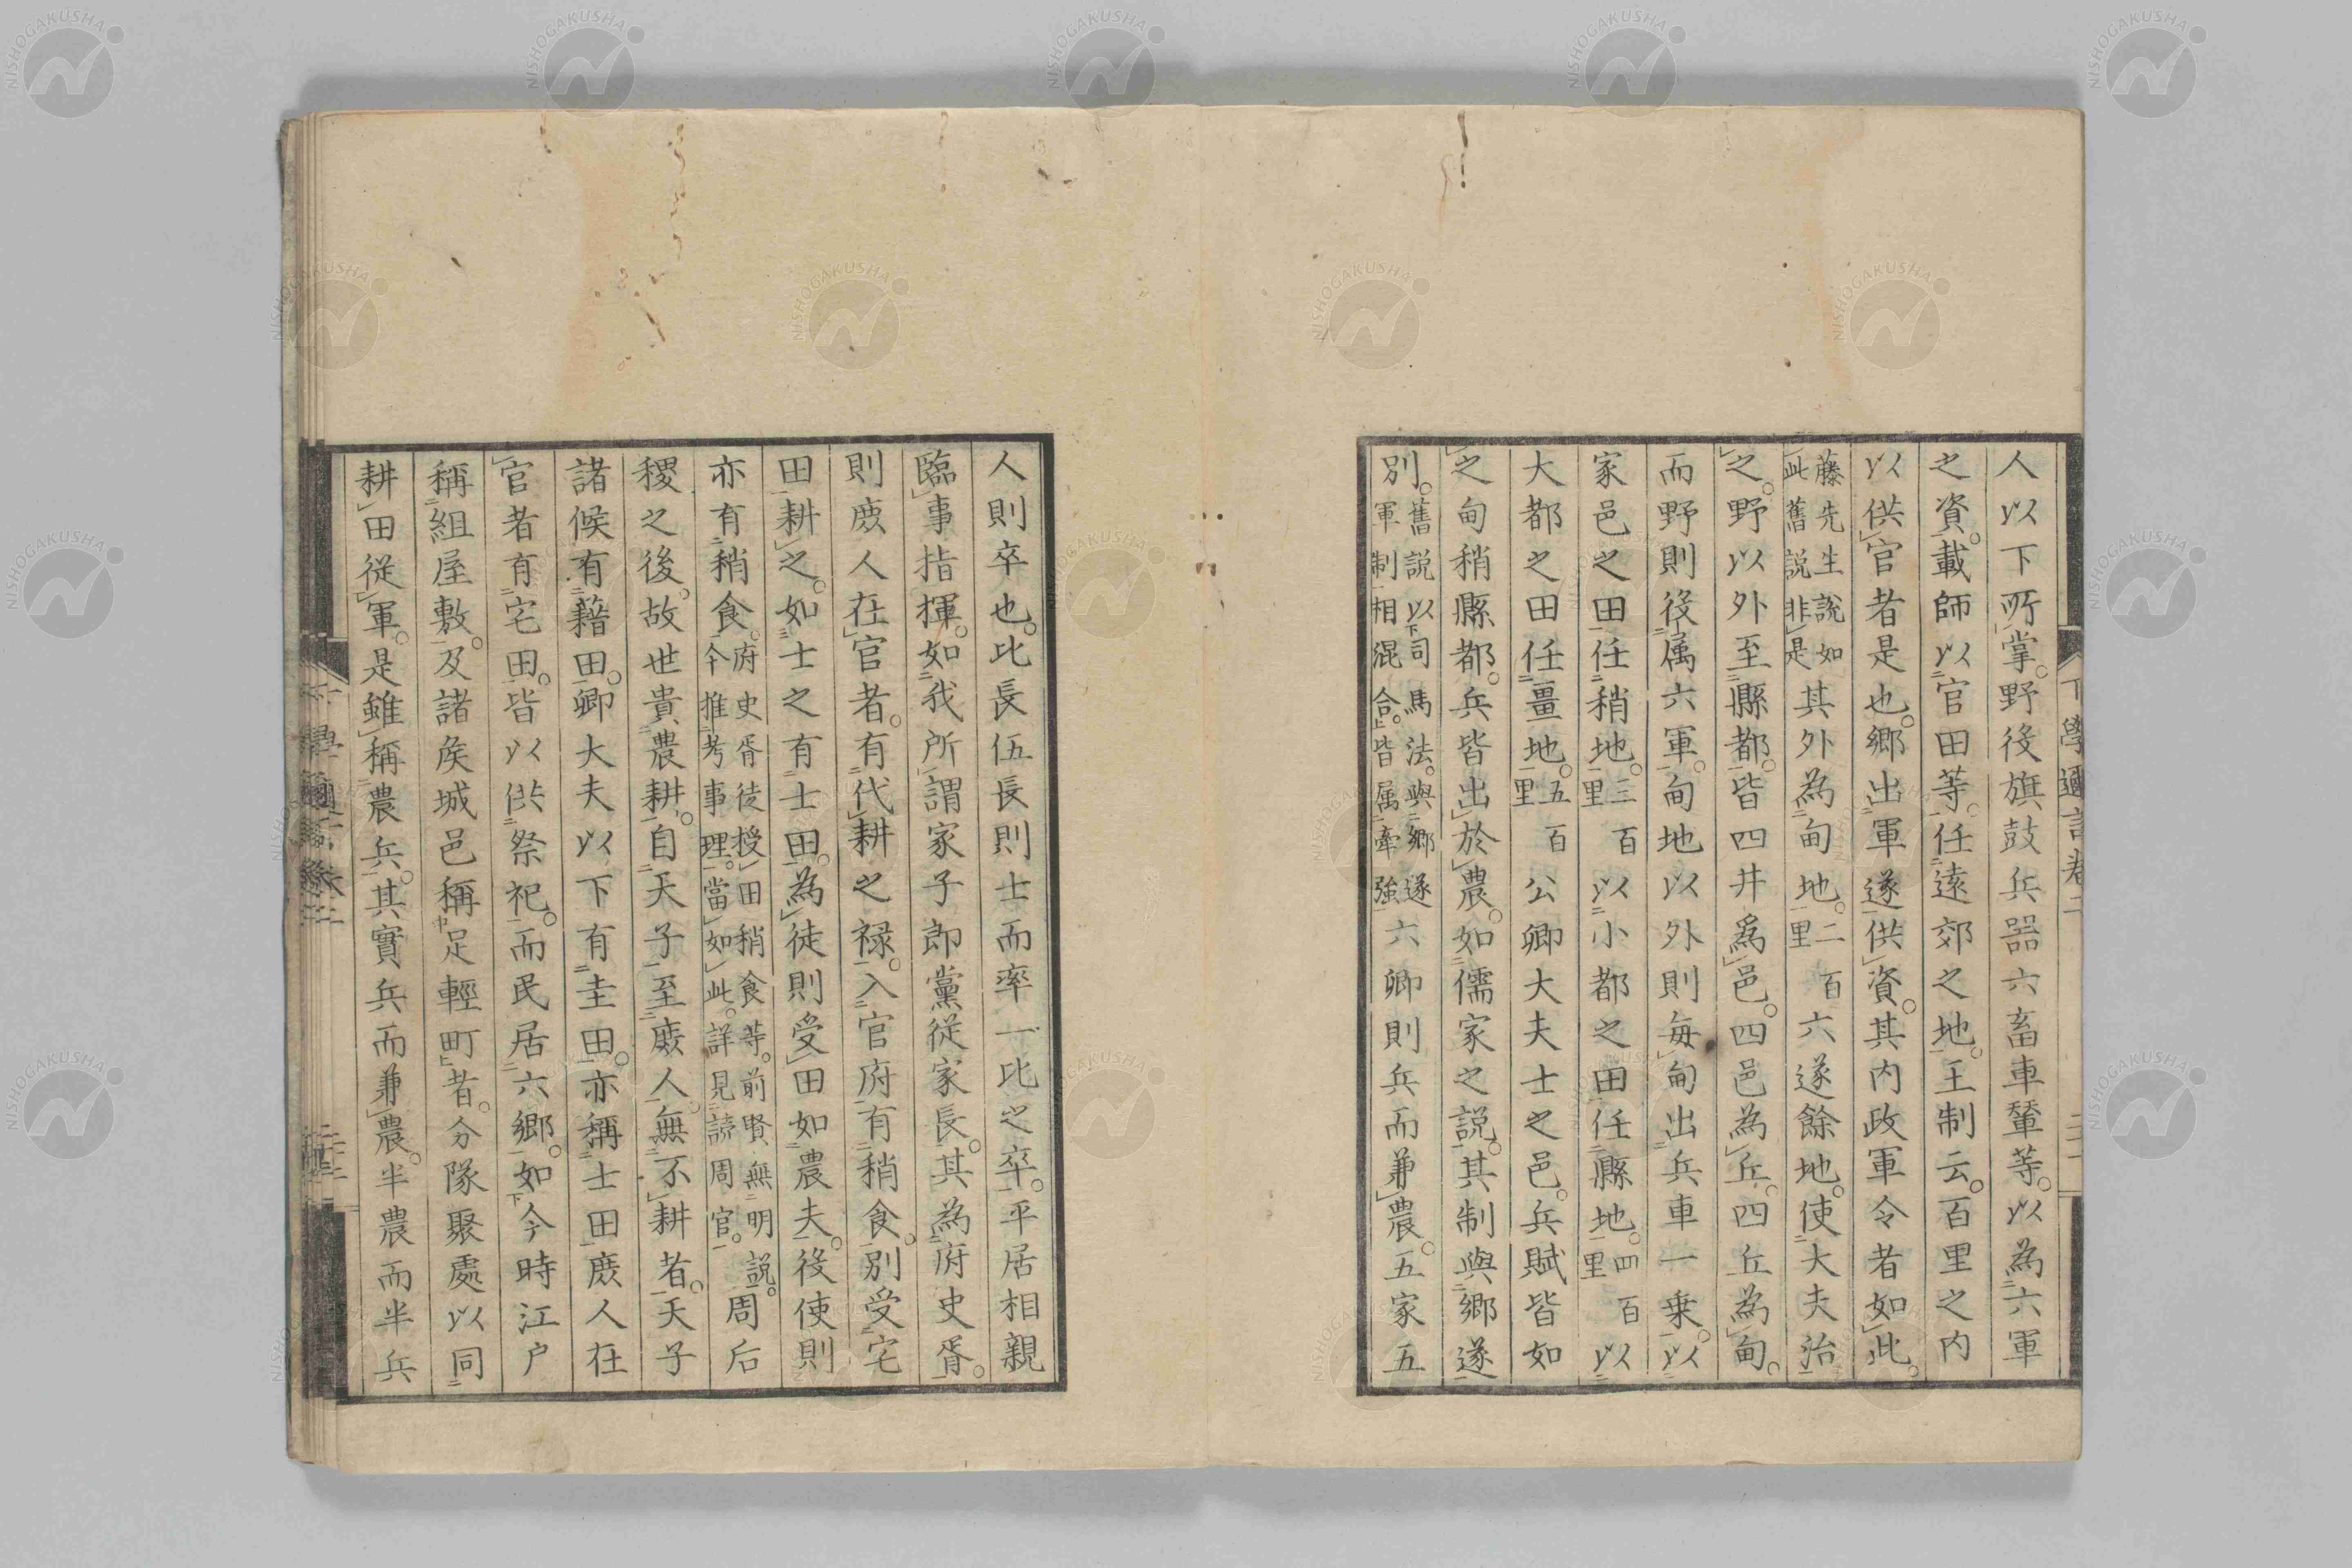 人以下所掌。野役旗鼓兵器六畜車輦等。以為六軍
之資。載師以官田等。任遠郊之地。王制云。百里之內
以供官者是也。鄉出軍遂供資。其内政軍令者如此。
藤先生説如此舊説非是其外為甸地。二百里六遂餘地。使大夫治
之。野以外至縣都。皆四井爲邑。四邑為丘。四丘為甸。
而野則役属六軍。甸地以外則毎甸出兵車一乗。以
家邑之田任稍地。三百里以小都之田任縣地。四百里以
大都之田任畺地。五百里公卿大夫士之邑。兵賦皆如
之甸稍縣都。兵皆出於農。如儒家之説。其制與鄉遂
別。舊説以司馬法。與鄉遂軍制相混合。皆属牽強六卿則兵而兼農。五家五
下學邇言卷二
人則卒也。比長伍長則士而率一比之卒。平居相親
臨事指揮。如我所謂家子郎黨從家長。其為府史胥。
則庶人在官者。有代耕之禄。入官府有稍食。別受宅
田耕之。如士之有士田。為徒則受田如農夫。役使則
亦有稍食。府史胥徒授田稍食等。前賢無明説。今推考事理。當如此。詳見諺周官。周后
稷之後。故世貴農耕。自天子至庶人無不耕者。天子
諸侯有藉田。卿大夫以下有圭田。亦稱士田庶人在
官者有宅田。皆以供祭祀。而民居六鄉。如今時江戸
稱組屋敷。及諸侯城邑稱足輕町者。分隊聚處以同
耕田從軍。是雖稱農兵。其實兵而兼農。半農而半兵